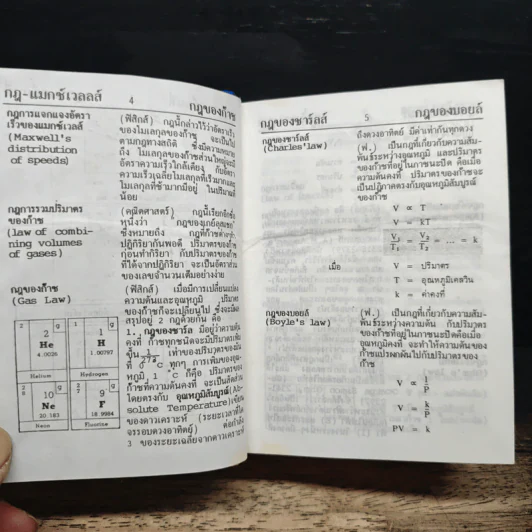 กฎ-แมกซ์เวลลส์ 4 กฎของก๊าซ
กฎการแจกแจงอัตรา
เร็วของแมกซ์เวลส์
(Maxwell's
distribution
of speeds)
(ฟิสิกส์) กฎนี้กล่าวไว้ว่าอัตราเร็ว
ของโมเลกุลของก๊าซ จะเป็นไป
ตามกฎทางสถิติ ซึ่งมีความหมาย
ถึง โมเลกุลของก๊าซส่วนใหญ่จะมี
อัตราความเร็วใกล้เคียง กับอัตรา
ความเร็วเฉลี่ยโมเลกุลที่เร็วมากและ
โมเลกุลที่ช้ามากมีอยู่ ในปริมาณที่
น้อย
กฎการรวมปริมาตร
ของก๊าซ
(law of combi-
ning volumes
of gases)
(คณิตศาสตร์) กฎนี้เรียกอีกชื่อ
หนึ่งว่า กฎของเกย์ลูสแซก
ซึ่งหมายถึง กฎที่ก๊าซต่างๆทำ
ปฏิกิริยากันพอดี ปริมาตรของก๊าซ
ก่อนทำกิริยา กับปริมาตรของก๊าซ
ที่ได้จากปฏิกิริยา จะเป็นอัตราส่วน
ของเลขจำนวนเต็มอย่างง่าย
กฎของก๊าซ
(Gas Law)
(ฟิสิกส์) เมื่อมีการเปลี่ยนแปลง
ความดันและอุณหภูมิ ปริมาตร
ของก๊าซก็จะเปลี่ยนไป ซึ่งจะมีผล
สรุปอยู่ 2 กฎด้วยกัน คือ
1. กฎของชาร์ล มีอยู่ว่าความดัน
คงที่ ก๊าซทุกชนิดจะมีปริมาตรเพิ่ม
ขึ้น 1/273 เท่าของปริมาตรของมัน
ที่ 0 °C ทุกๆ การเพิ่มของอุณ-
หภูมิ 1 °C ก็คือ ปริมาตรของ
ก๊าซที่ความดันคงที่ จะเป็นสัดส่วน
โดยตรงกับ อุณหภูมิสัมบูรณ์(Ab-
solute Temperature)เขียน
ของดาวเคราะห์ (ระยะเวลาที่โค
จรรอบดวงอาทิตย์) ต่อกำลัง
3 ของระยะเฉลี่ยจากดาวเคราะห์
2 2 g
He
4.0026
Helium
1 1 g
H
1.00797
Hydrogen
2 8 10 g
Ne
20.183
Neon
2 7 9 g
F
18.9984
Fluorine
กฎของชาร์ลส์ 5 กฎของบอยล์
ถึงดวงอาทิตย์ มีค่าเท่ากันทุกดวง
กฎของชาร์ลส์
(Charles'law)
(ฟ.) เป็นกฎที่เกี่ยวกับความสัม-
พันธ์ระหว่างอุณหภูมิ และปริมาตร
ของก๊าซที่อยู่ในภาชนะปิด คือเมื่อ
ความดันคงที่ ปริมาตรของก๊าซจะ
เป็นปฏิภาคตรงกับอุณหภูมิสัมบูรณ์
ของก๊าซ
V ∝ T
V = kT
V₁/T₁ = V₂/T₂ = ... = k
เมื่อ V = ปริมาตร
T = อุณหภูมิเคลวิน
k = ค่าคงที่
กฎของบอยล์
(Boyle's law)
(ฟ.) เป็นกฎที่เกี่ยวกับความสัม-
พันธ์ระหว่างความดัน กับปริมาตร
ของก๊าซที่อยู่ในภาชนะปิดคือเมื่อ
อุณหภูมิคงที่ จะทำให้ความดันของ
ก๊าซแปรผกผันไปกับปริมาตรของ
ก๊าซ
V ∝ 1/P
V = k/P
PV = k